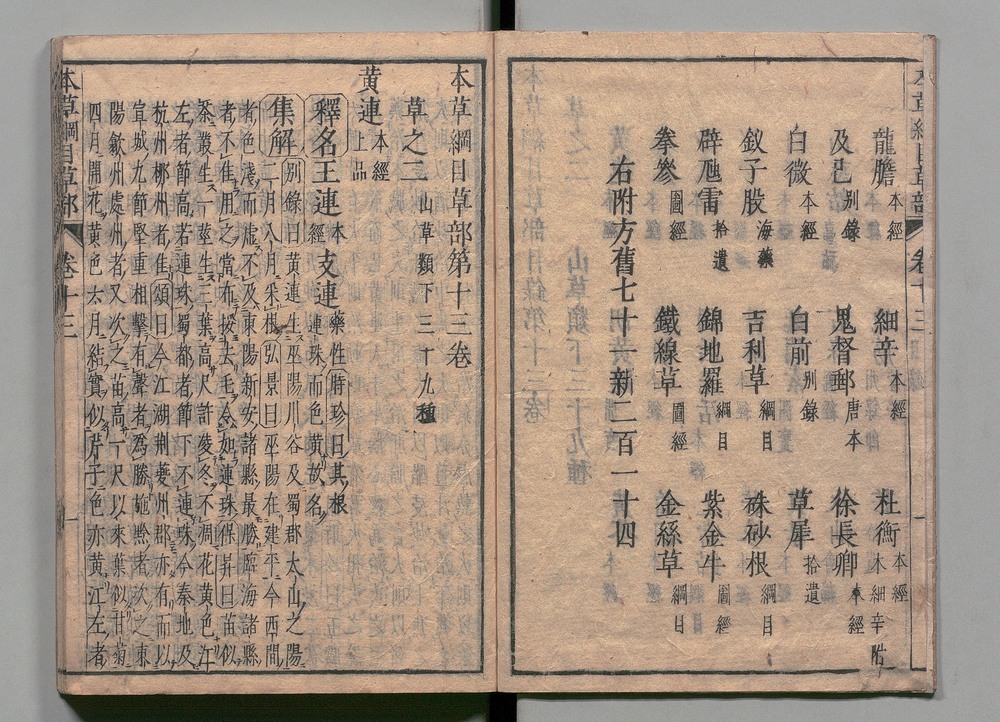 龍膽 本經 細辛 本經 杜衡 本經 木細辛附
及己 別錄 鬼督郵 唐本 徐長卿 本經
白微 本經 白前 別錄 草犀 拾遺
釵子股 海藥 吉利草 綱目 硃砂根 綱目
辟虺雷 拾遺 錦地羅 綱目 紫金牛 圖經
拳參 圖經 鐵線草 圖經 金絲草 綱目
右附方舊七十一新二百一十四
本草綱目草部第十三卷
草之二 山草類下三十九種
黃連 本經上品
釋名 王連 本經 支連 藥性 時珍曰其根連珠而色黃故名
集解 別錄曰黃連生巫陽川谷及蜀郡太山之陽二月八月采根 弘景曰巫陽在建平今西間
者色淺而虛不及東陽新安諸縣最勝臨海諸縣
者不佳用之當布裹挼去毛令如連珠 保昇曰苗似
茶叢生一莖生三葉高尺許凌冬不凋花黃色江
左者節高若連珠蜀都者節下不連珠今秦地及
杭州柳州者佳 頌曰今江湖荊夔州郡亦有而以
宣城九節堅重相擊有聲者為勝施黔者次之東
陽歙州處州者又次之苗高一尺以來葉似甘菊
四月開花黃色六月結實似芹子色亦黃江左者
本草綱目草部 卷十三 一